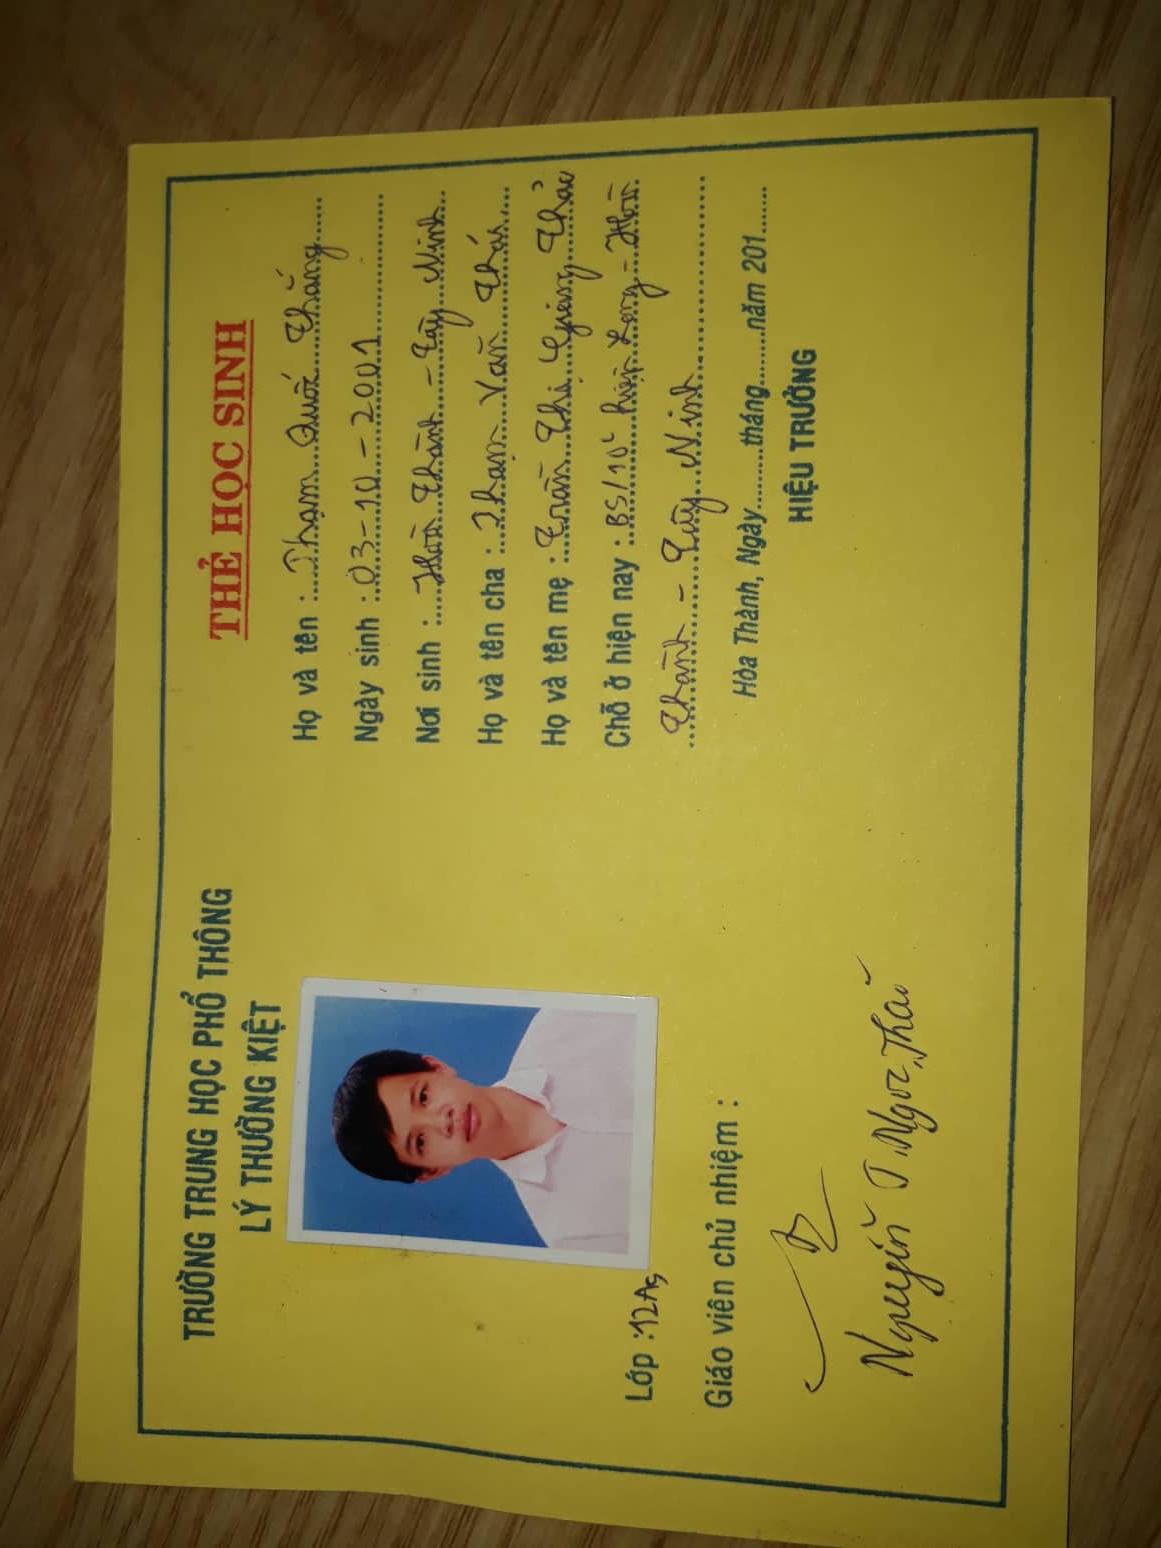 TRƯỜNG TRUNG HỌC PHỔ THÔNG
LÝ THƯỜNG KIỆT
Lớp :12A5
Giáo viên chủ nhiệm :
Nguyễn T. Ngọc Thảo
THẺ HỌC SINH
Họ và tên : Phạm Quốc Thắng
Ngày sinh : 03-10-2001
Nơi sinh : Hoà Thành - Tây Ninh
Họ và tên cha : Phạm Văn
Họ và tên mẹ : Trần Thị Giáng
Chỗ ở hiện nay : Long - Hoà
Thành - Tây Ninh
Hòa Thành, Ngày..........tháng..........năm 201.......
HIỆU TRƯỞNG